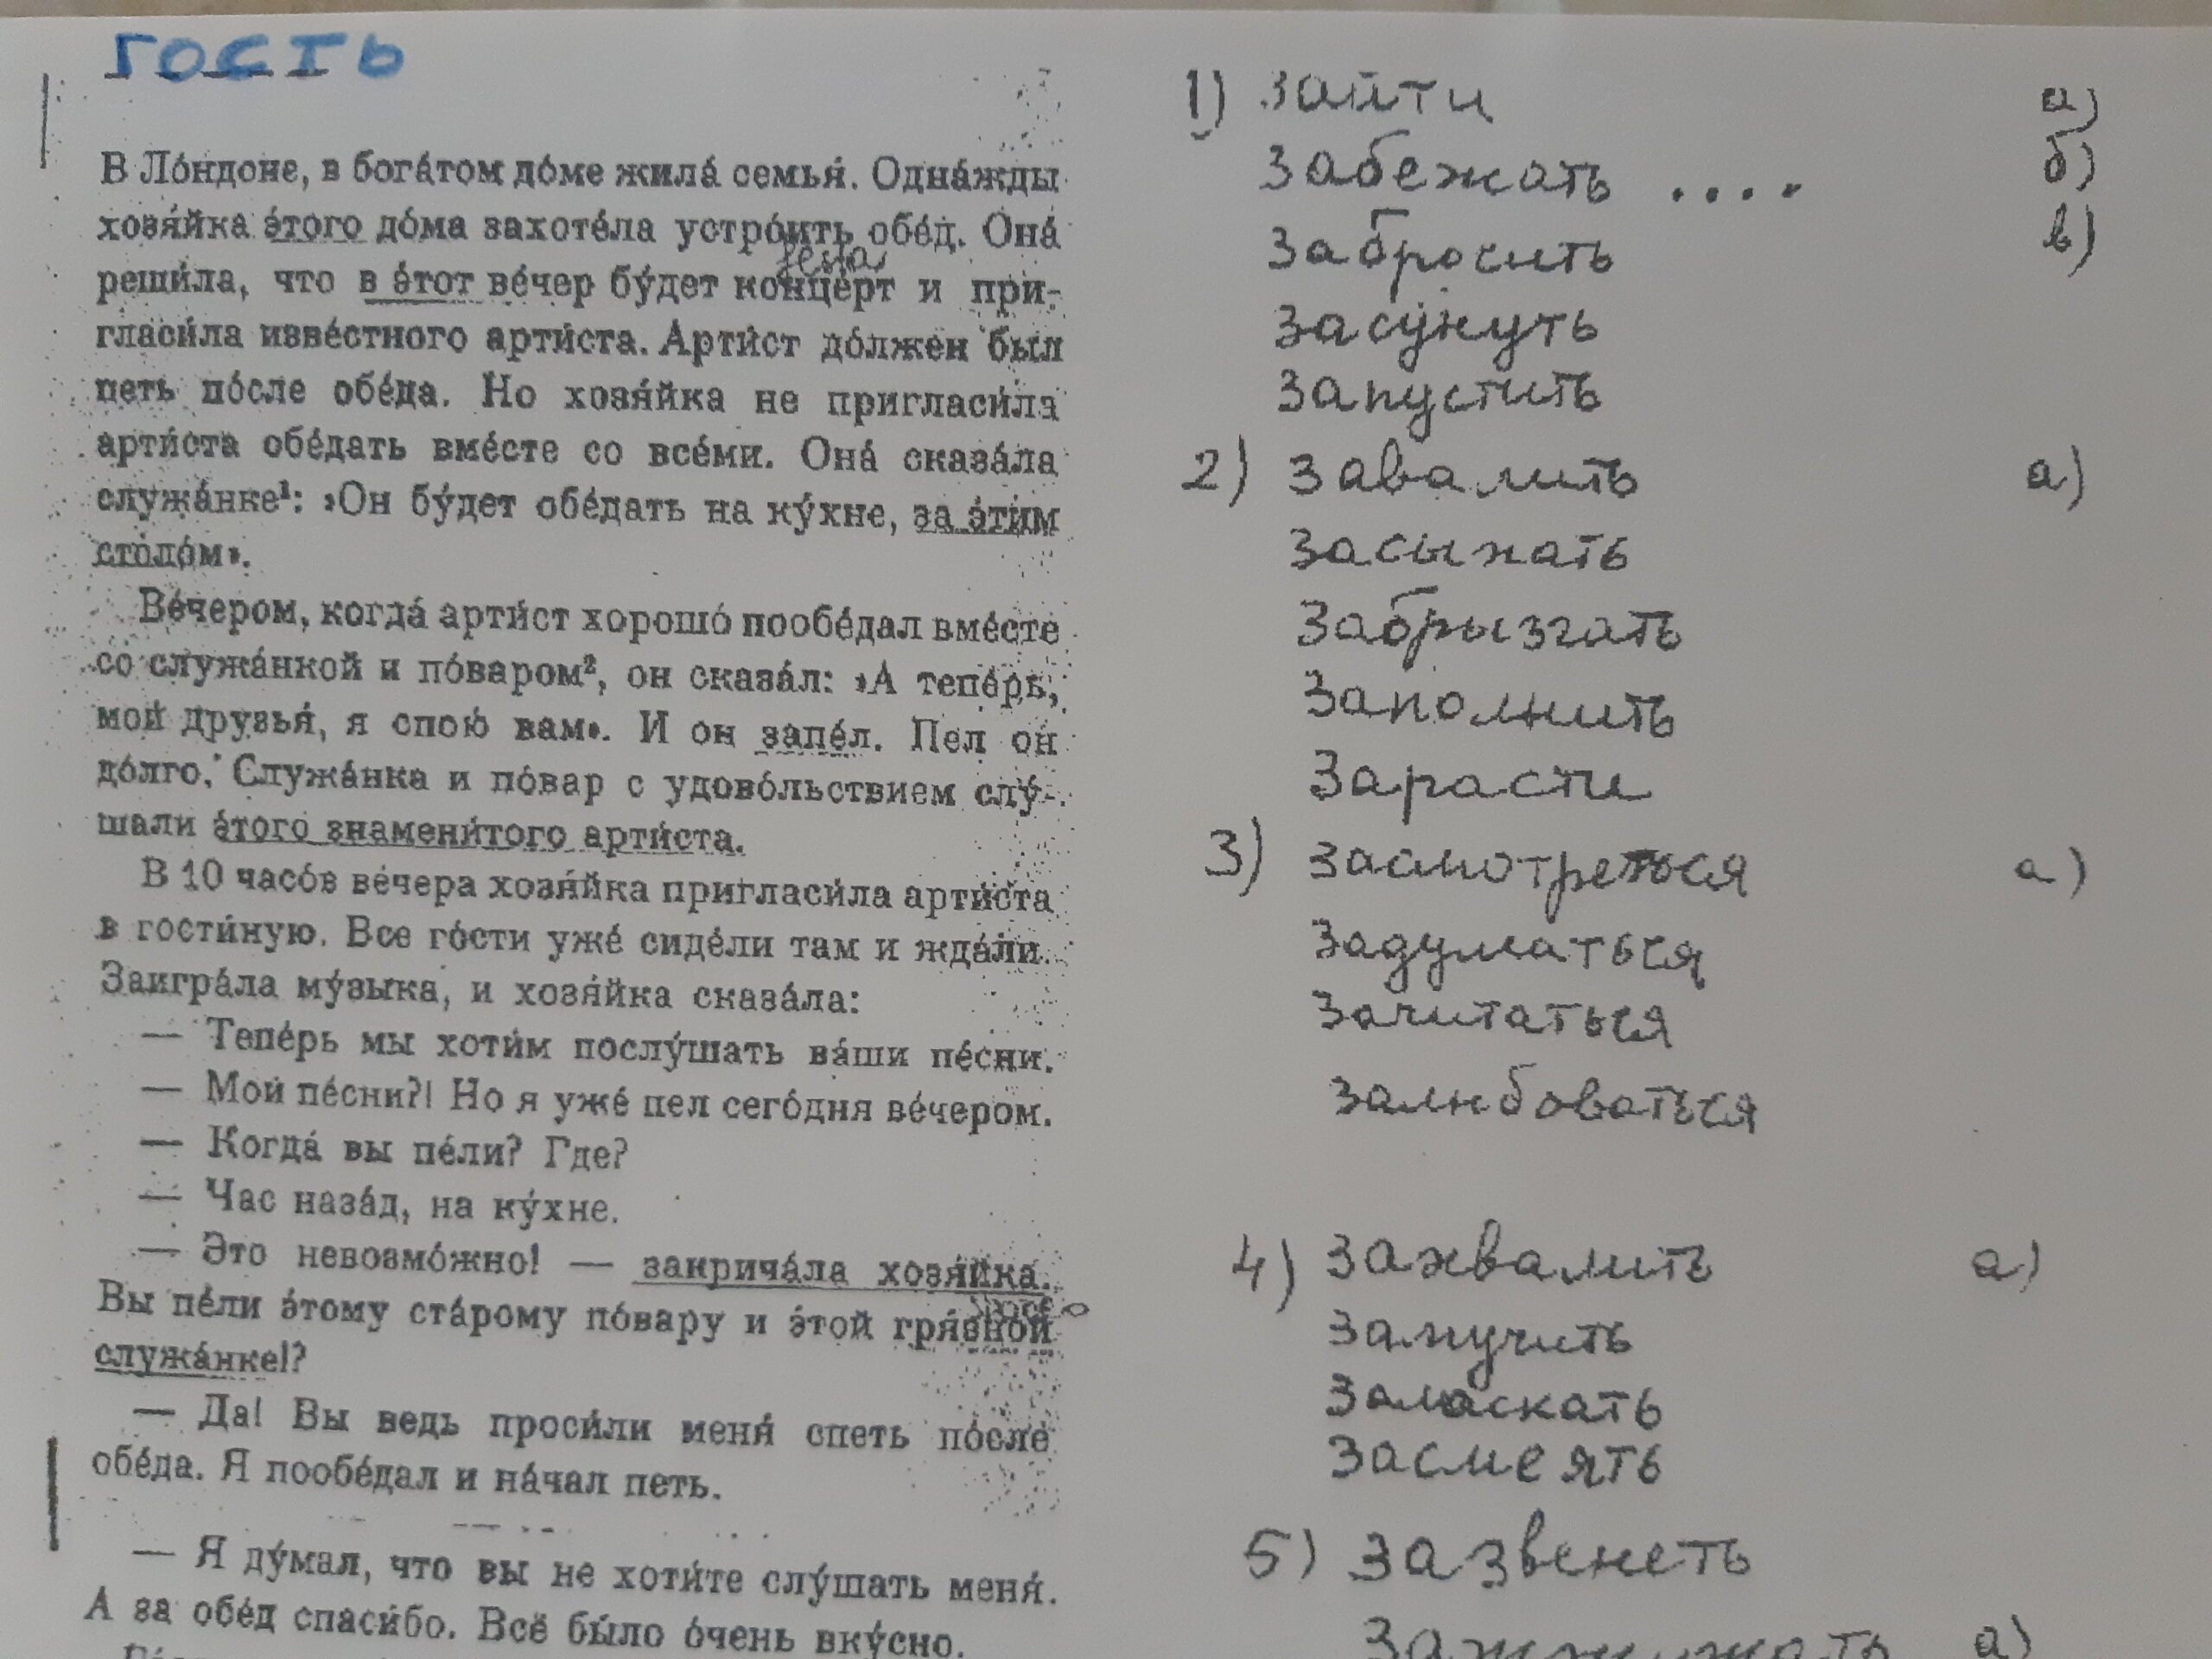 ГОСТЬ
В Ло́ндоне, в бога́том до́ме жила́ семья́. Одна́жды
хозя́йка э́того до́ма захоте́ла устро́ить обе́д. Она́
festa
реши́ла, что в э́тот ве́чер бу́дет конце́рт и при-
гласи́ла изве́стного арти́ста. Арти́ст до́лжен был
петь по́сле обе́да. Но хозя́йка не пригласи́ла
арти́ста обе́дать вме́сте со все́ми. Она́ сказа́ла
служа́нке¹: »Он бу́дет обе́дать на ку́хне, за э́тим
столо́м».
Ве́чером, когда́ арти́ст хорошо́ пообе́дал вме́сте
со служа́нкой и по́варом², он сказа́л: »А тепе́рь,
мои́ друзья́, я спою́ вам». И он запе́л. Пел он
до́лго. Служа́нка и по́вар с удово́льствием слу́-
шали э́того знамени́того арти́ста.
В 10 часо́в ве́чера хозя́йка пригласи́ла арти́ста
в гости́ную. Все го́сти уже́ сиде́ли там и жда́ли.
Заигра́ла му́зыка, и хозя́йка сказа́ла:
— Тепе́рь мы хоти́м послу́шать ва́ши пе́сни.
— Мои́ пе́сни?! Но я уже́ пел сего́дня ве́чером.
— Когда́ вы пе́ли? Где?
— Час наза́д, на ку́хне.
— Это невозмо́жно! — закрича́ла хозя́йка.
Вы пе́ли э́тому ста́рому по́вару и э́той гря́зной
служа́нке!?
— Да! Вы ведь проси́ли меня́ спеть по́сле
обе́да. Я пообе́дал и на́чал петь.
— Я ду́мал, что вы не хоти́те слу́шать меня́.
А за обе́д спаси́бо. Всё бы́ло о́чень вку́сно.
1) зайти а)
забежать .... б)
забросить в)
засунуть
запустить
2) завалить а)
засыпать
забрызгать
заполнить
зарасти
3) засмотреться а)
задуматься
зачитаться
залюбоваться
4) захвалить а)
замучить
заласкать
засмеять
5) зазвенеть
зажжужать а)